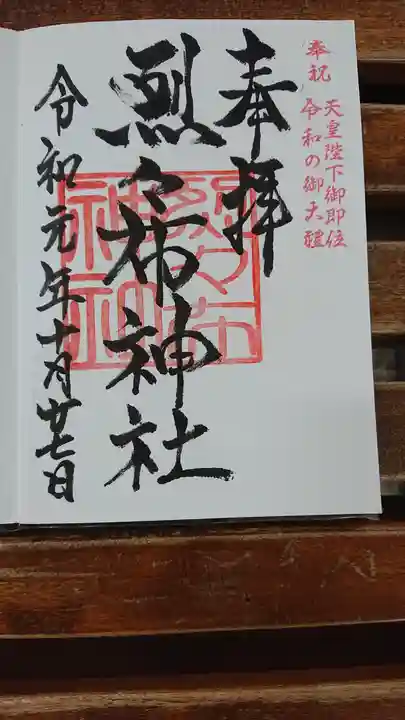 奉祝
天皇陛下御即位
令和の御大禮
奉拝
烈々布神社
令和元年十月廿七日